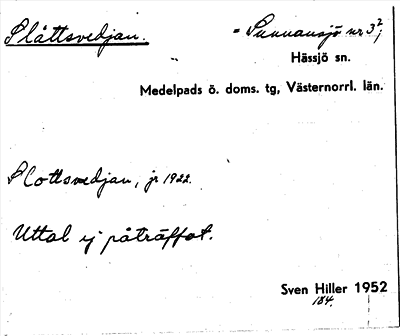 Slåttsvedjan. = Sunnansjö nr 3²;
Hässjö sn.
Medelpads ö. doms. tg, Västernorrl. län.
Slottsvedjan, jr 1922.
Uttal ej påträffat.
Sven Hiller 1952
184.